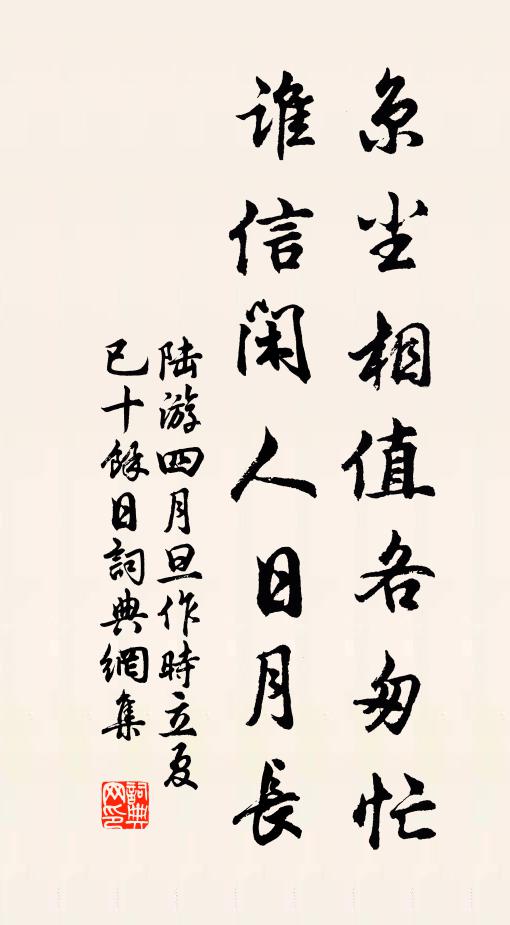 京尘相值各匆忙
谁信闲人日月長
陆游四月旦作時立夏
已十餘日詞典網集
詞典网印